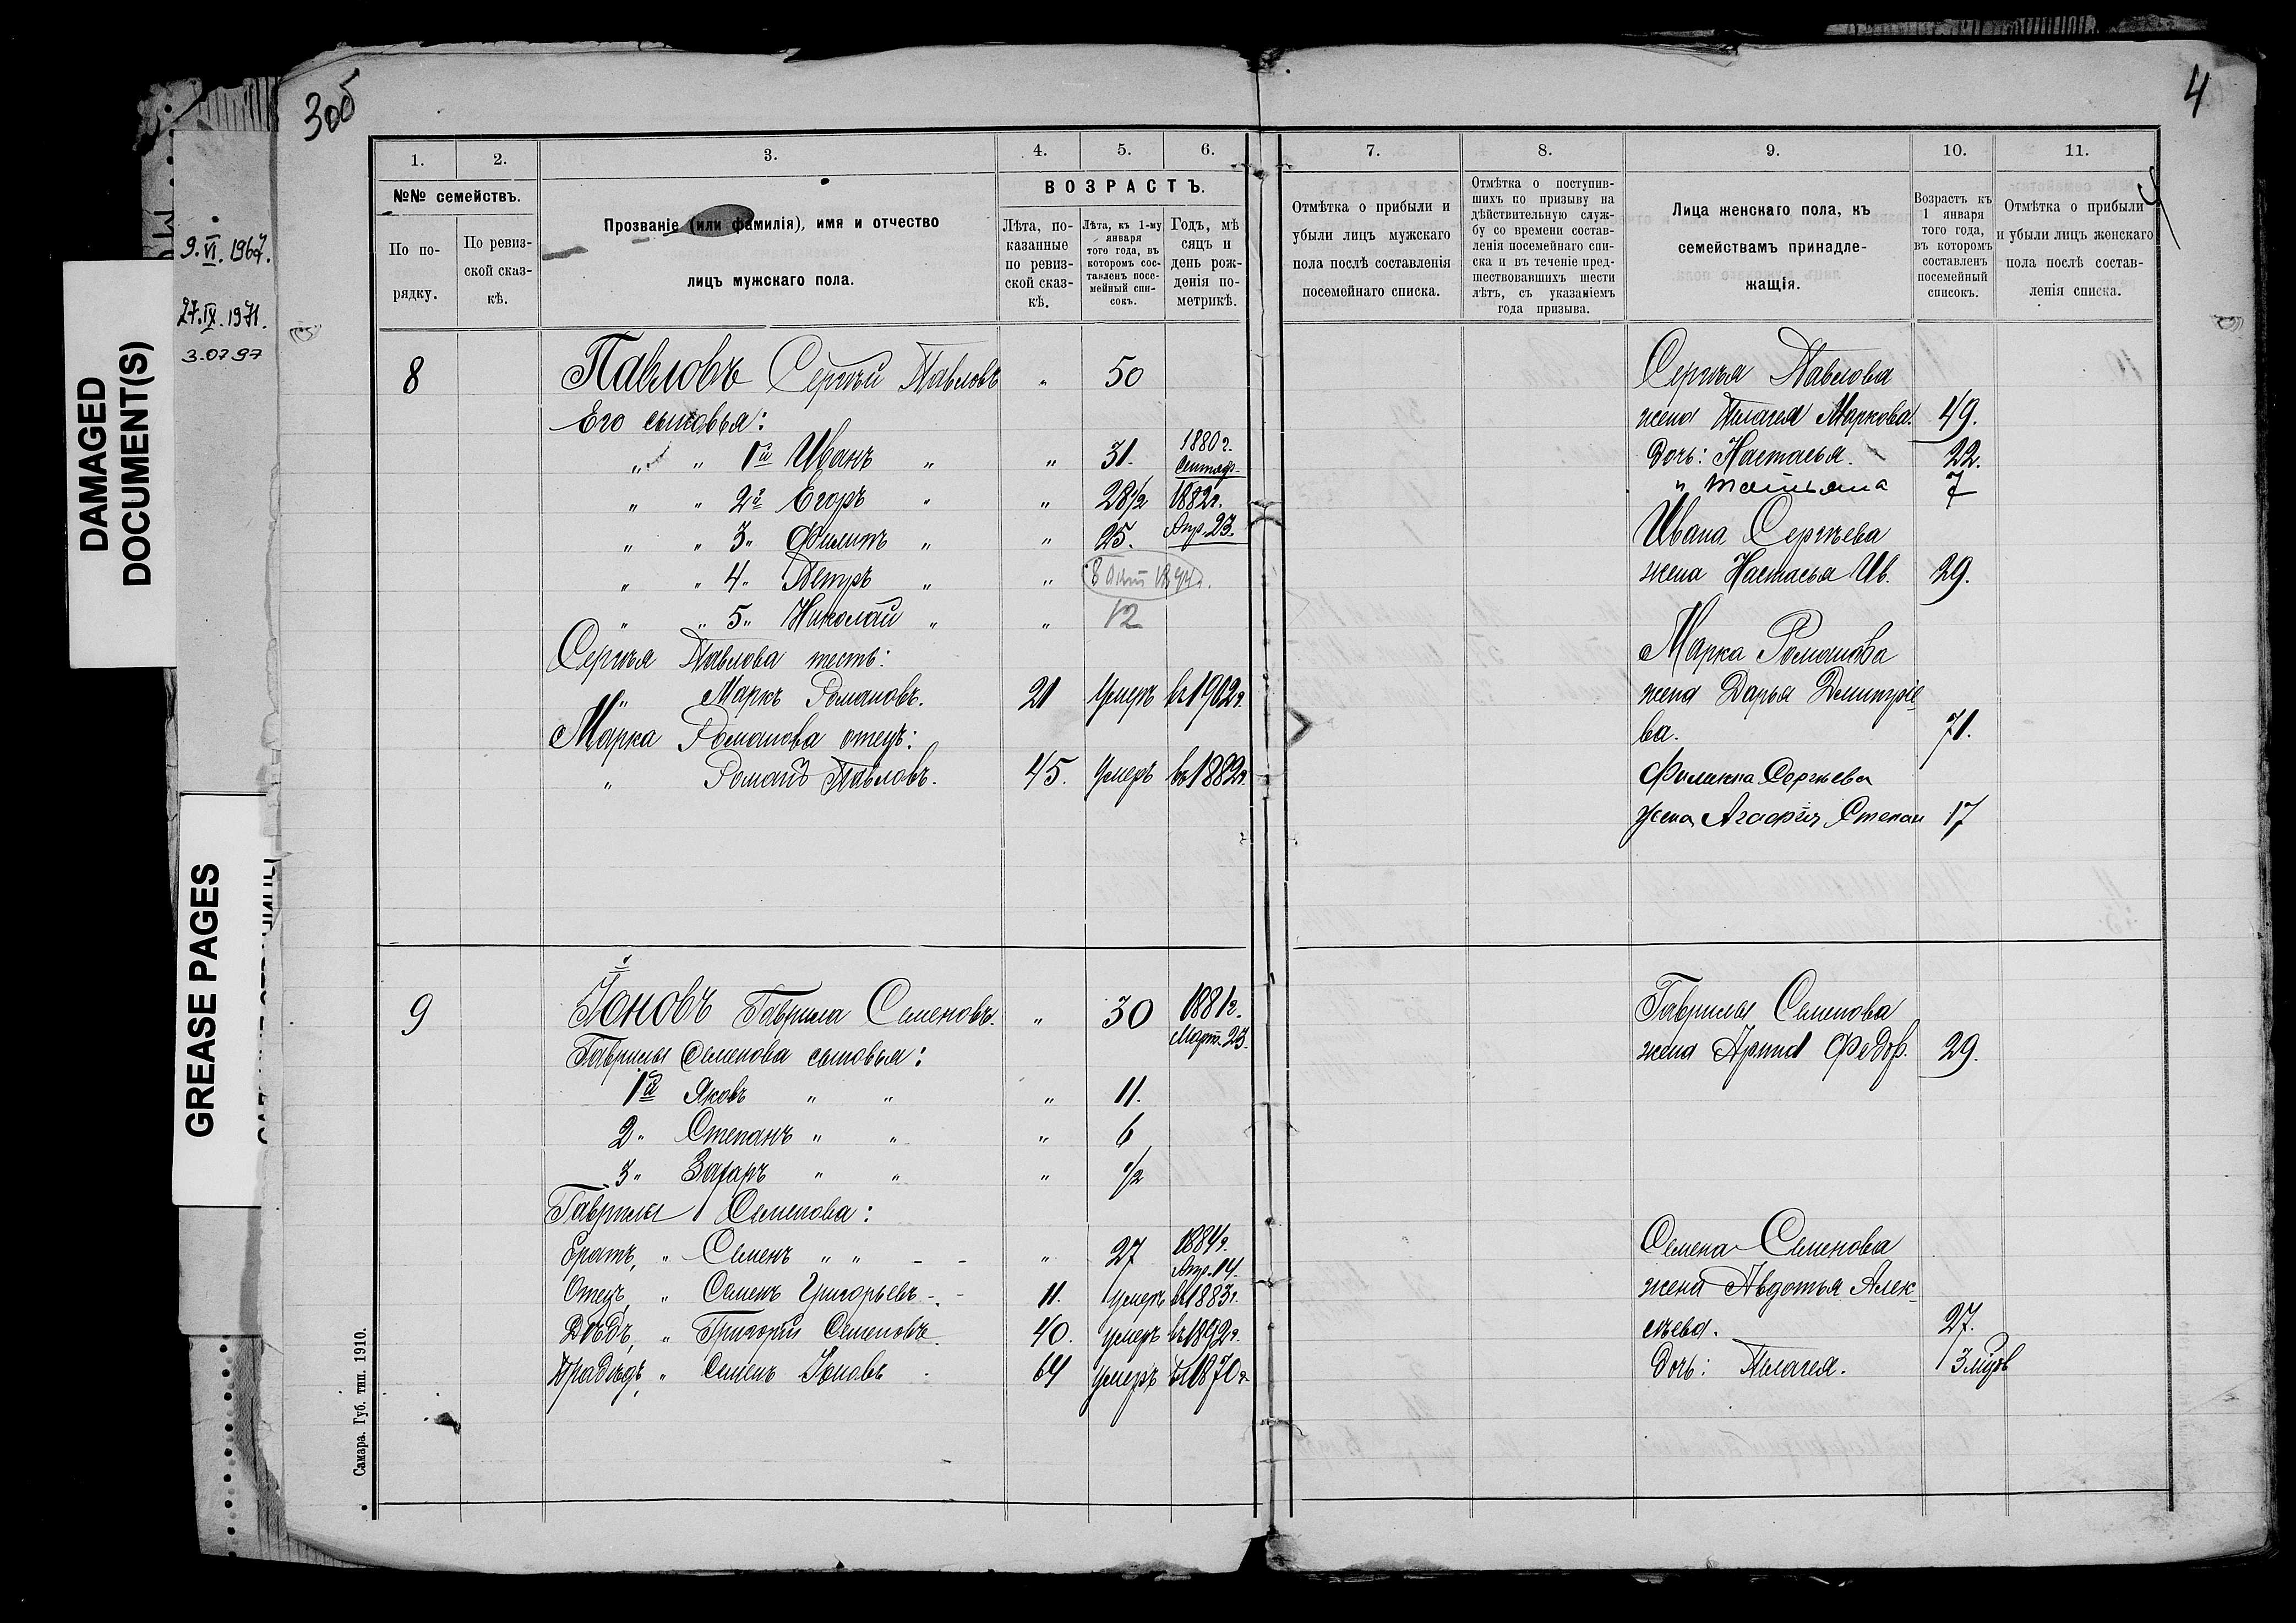 3об
4
9.VI.1967.
27.IX.1971.
3.0797
DAMAGED
DOCUMENT(S)
GREASE PAGES
Самара. Губ. тип. 1910.
1. 2. 3. 4. 5. 6.
№№ семействъ.
По по-
рядку.
По ревиз-
ской сказ-
кѣ.
Прозваніе (или фамилія), имя и отчество
лицъ мужскаго пола.
ВОЗРАСТЪ.
Лѣта, по-
казанные
по ревиз-
ской сказ-
кѣ.
Лѣта, къ 1-му
января
того года, въ
которомъ сос-
тавленъ посе-
мейный спи-
сокъ.
Годъ, мѣ
сяцъ и
день рож-
денія по-
метрикѣ.
8 Павловъ Сергѣй Павловъ " 50
Его сыновья:
" " 1й Иванъ " " 31. 1880г. Сентяб.
" " 2й Егоръ " " 28½ 1882г.
Апр. 23.
" " 3" Филипъ " " 25.
" " 4" Петръ " " 8 1894г.
" " 5" Николай " " 12
Сергѣя Павлова тесть:
" Маркъ Романовъ. 21 умеръ въ 1902г.
Марка Романова отецъ:
" Романъ Павловъ. 45. умеръ въ 1882г.
9 Іоновъ Гаврила Семеновъ. " 30 1881г.
Март. 23.
Гаврилы Семенова сыновья:
1й Яковъ " " " 11.
2" Степанъ " " " 6
3" Захаръ " " " ½
Гаврилы Семенова:
Братъ, " Семенъ " " - - " 27 1884г.
Апр. 14.
Отецъ, " Семенъ Григорьевъ - - 11. умеръ въ 1883г.
Дѣдъ, " Григорій Семеновъ 40. умеръ въ 1892г.
Прадѣдъ, " Семенъ Іоновъ 64 умеръ въ 1870г
7. 8. 9. 10. 11.
Отмѣтка о прибыли и
убыли лицъ мужскаго
пола послѣ составленія
посемейнаго списка.
Отмѣтка о поступив-
шихъ по призыву на
дѣйствительную служ-
бу со времени состав-
ленія посемейнаго спи-
ска и въ теченіе пред-
шествовавшихъ шести
лѣтъ, съ указаніемъ
года призыва.
Лица женскаго пола, къ
семействамъ принадле-
жащія.
Возрастъ къ
1 января
того года,
въ которомъ
составленъ
посемейный
списокъ.
Отмѣтка о прибыли
и убыли лицъ женскаго
пола послѣ состав-
ленія списка.
Сергѣя Павлова
жена Пелагея Маркова. 49.
Дочь: Настасья. 22.
" Татьяна 7
Ивана Сергѣева
жена Настасья Ив. 29.
Марка Романова
жена Дарья Дмитріе-
ва. 71.
Филиппа Сергѣева
жена Агафія Степан 17
Гаврилы Семенова
жена Арина Федор. 29.
Семена Семенова
жена Авдотья Алек-
сѣева. 27.
Дочь: Пелагея.